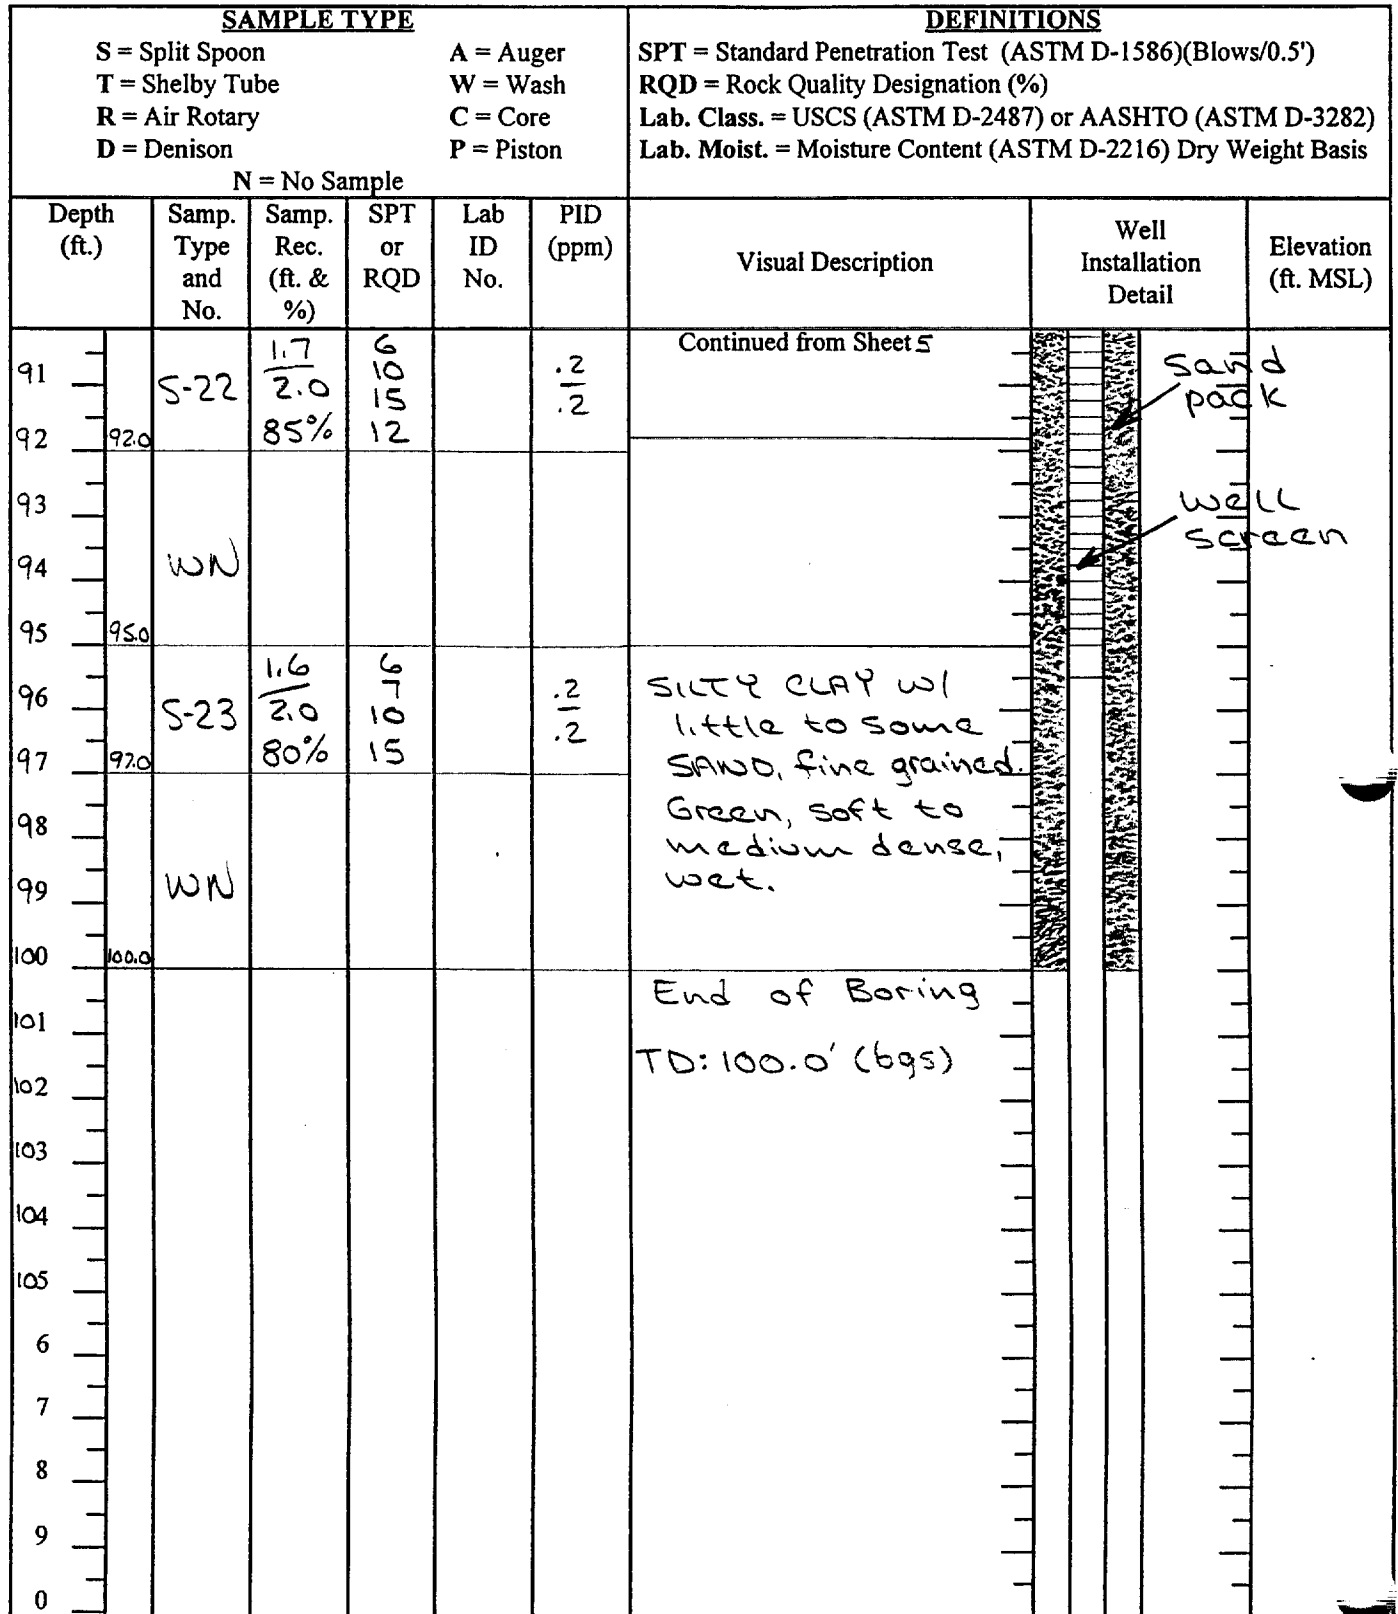 SAMPLE TYPE
S = Split Spoon A = Auger
T = Shelby Tube W = Wash
R = Air Rotary C = Core
D = Denison P = Piston
N = No Sample
DEFINITIONS
SPT = Standard Penetration Test (ASTM D-1586)(Blows/0.5')
RQD = Rock Quality Designation (%)
Lab. Class. = USCS (ASTM D-2487) or AASHTO (ASTM D-3282)
Lab. Moist. = Moisture Content (ASTM D-2216) Dry Weight Basis
Depth
(ft.)
Samp.
Type
and
No.
Samp.
Rec.
(ft. &
%)
SPT
or
RQD
Lab
ID
No.
PID
(ppm)
Visual Description
Well
Installation
Detail
Elevation
(ft. MSL)
Continued from Sheet 5
91
92
92.0
S-22
1.7
2.0
85%
6
10
15
12
.2
.2
sand
pack
93
94
95
95.0
WN
well
screen
96
97
97.0
S-23
1.6
2.0
80%
6
7
10
15
.2
.2
SILTY CLAY w/
little to some
SAND, fine grained.
Green, soft to
medium dense,
wet.
98
99
100
100.0
WN
End of Boring
TD: 100.0' (bgs)
101
102
103
104
105
6
7
8
9
0